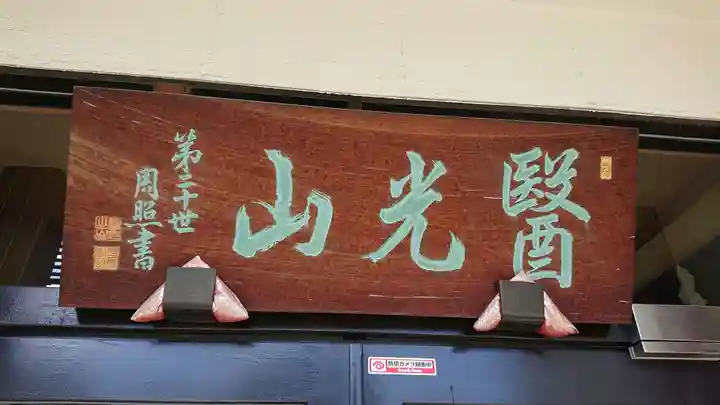 醫光山
第三十世
周照書
防犯カメラ録画中